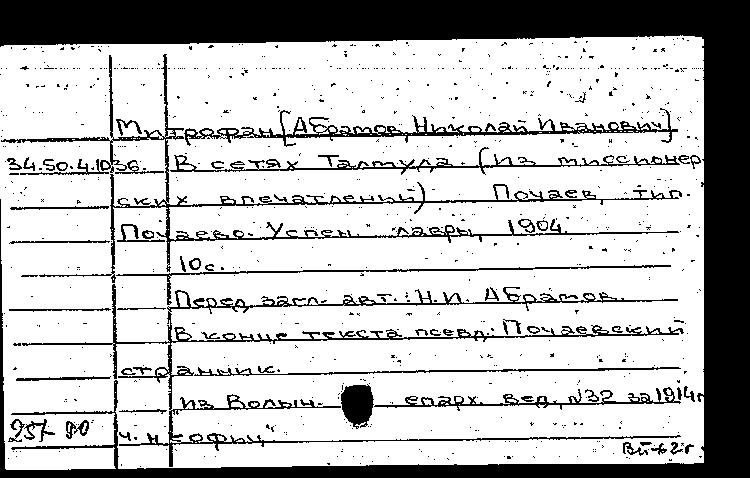 Митрофан [Абрамов, Николай Иванович]
34.50.4.1036. В сетях Талмуда. (Из миссионер-
ских впечатлений) Почаев, тип.
Почаево-Успен. лавры, 1904.
10с.
Перед загл. авт.: Н.И. Абрамов.
В конце текста псевд: Почаевский
странник.
"из Волын. епарх. вед., №32 за 1914г
257-90 ч. неофиц"